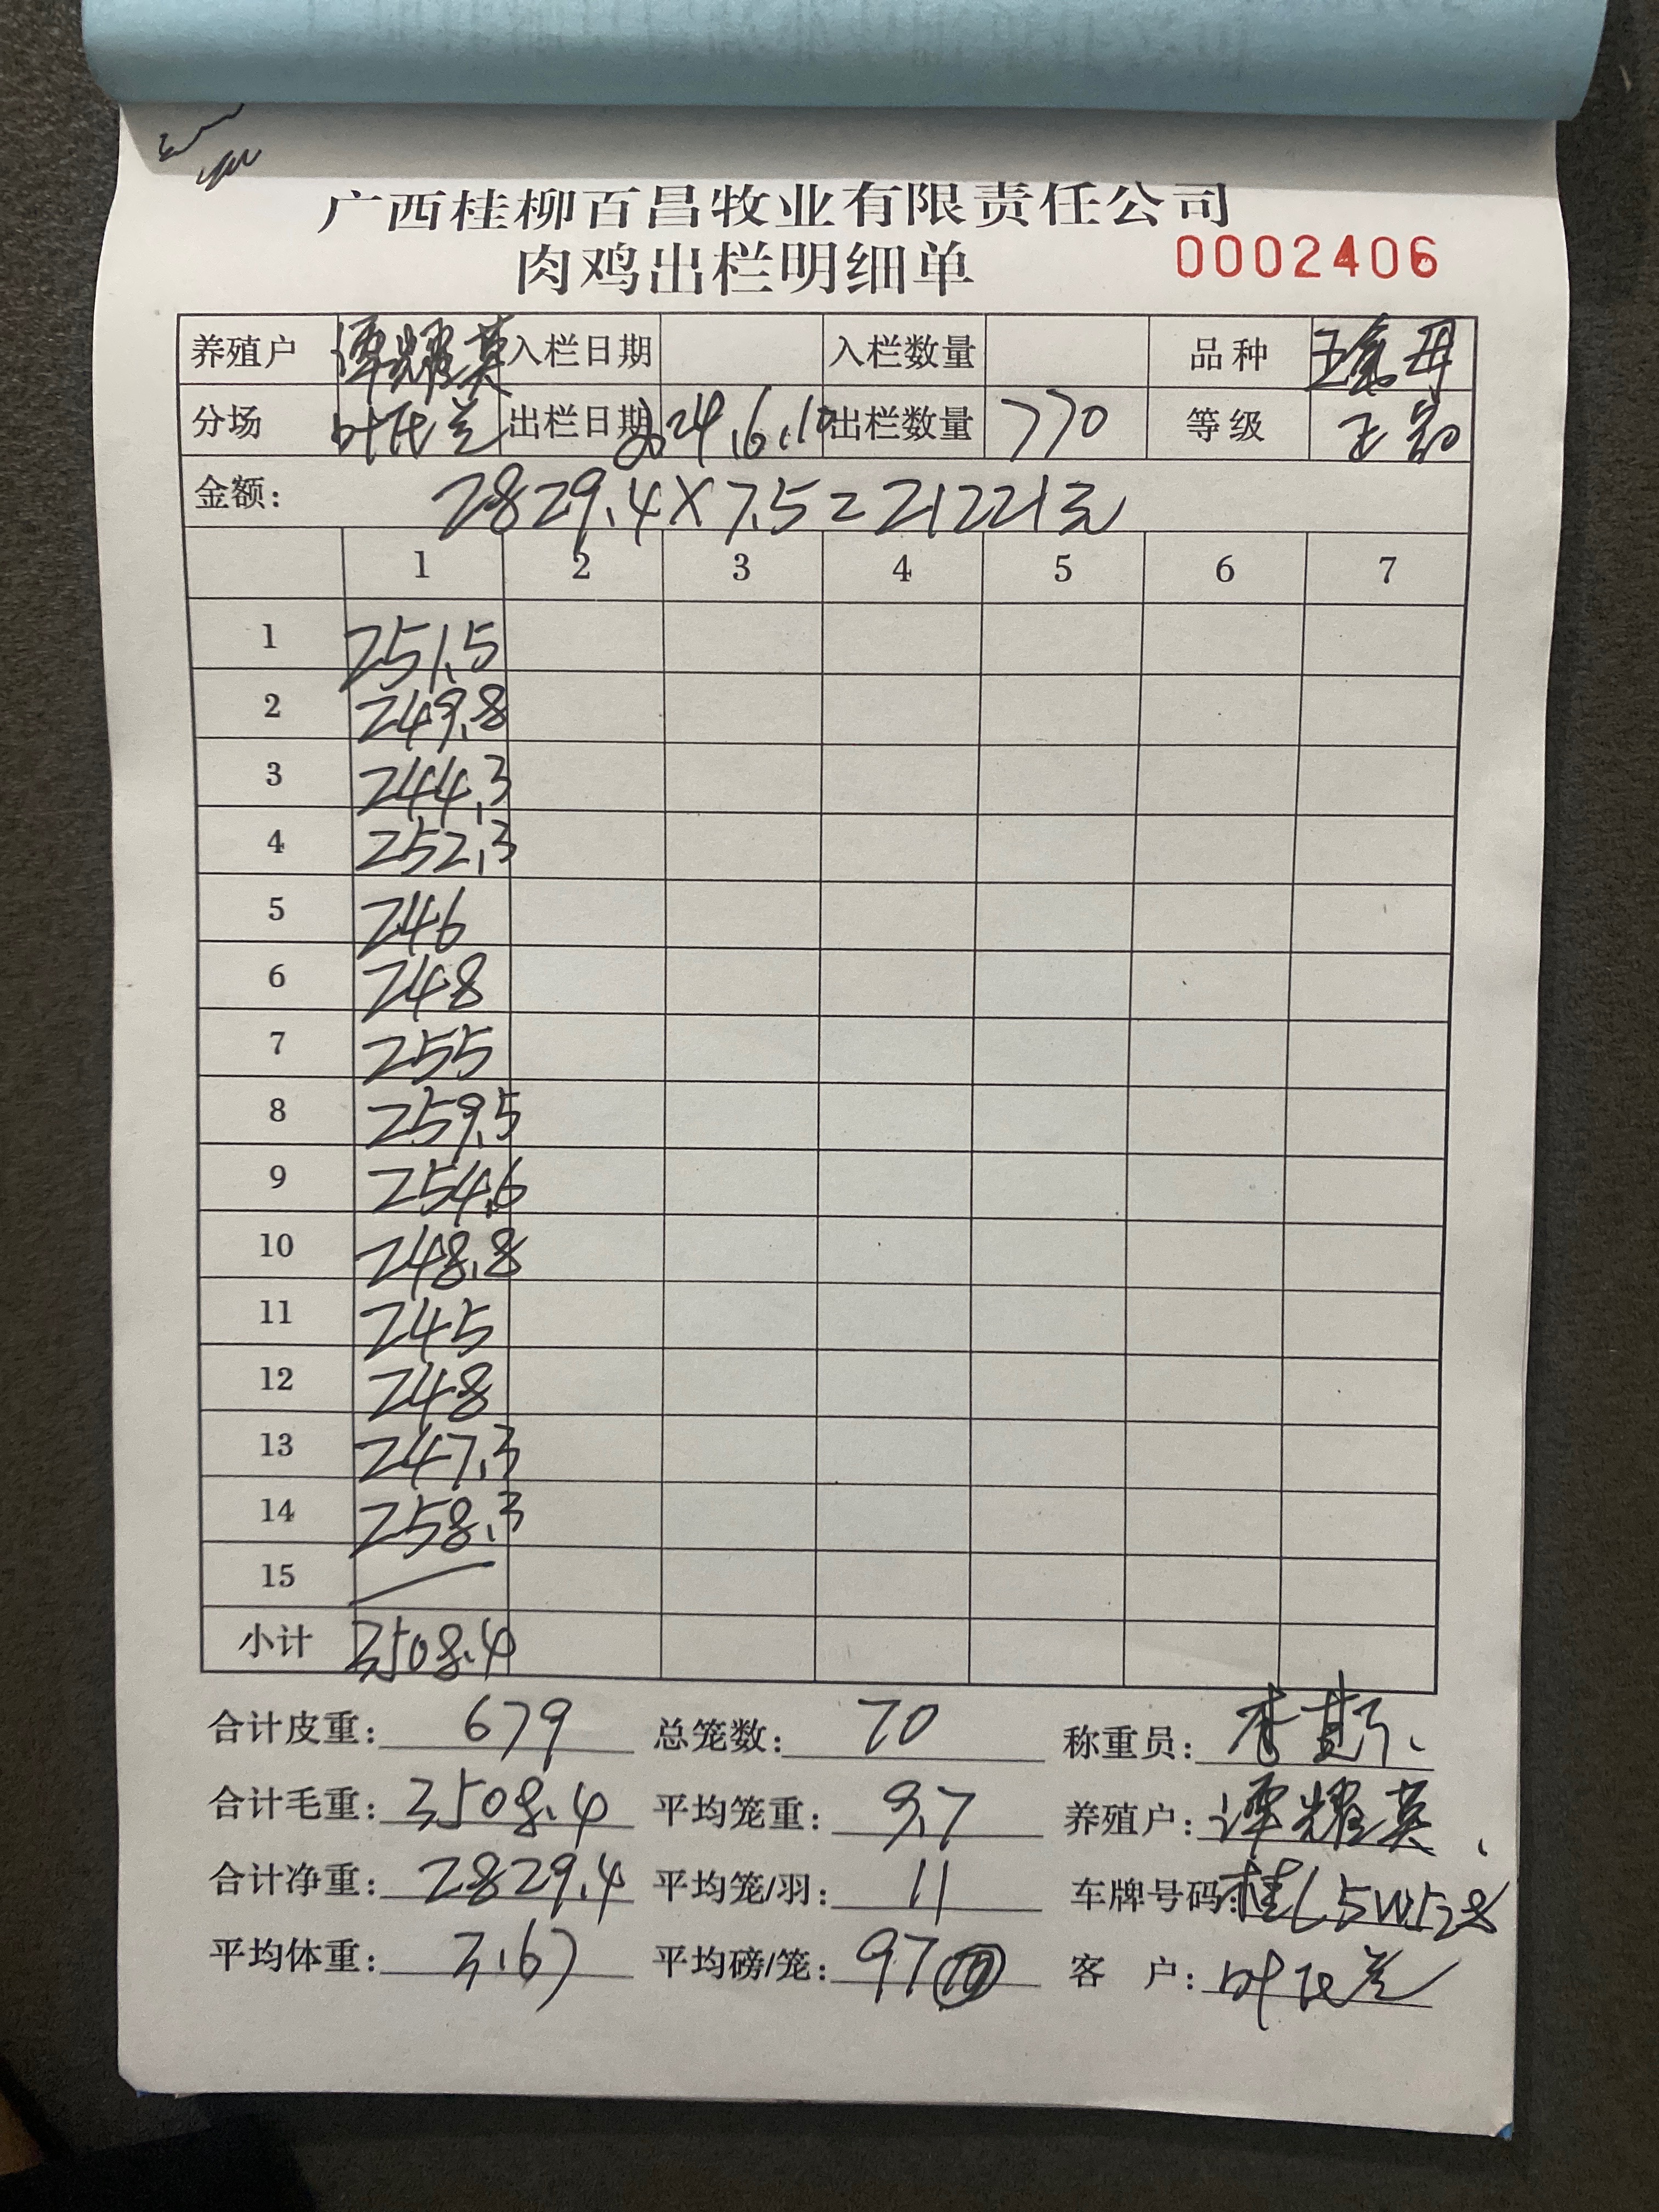 广西桂柳百昌牧业有限责任公司
肉鸡出栏明细单 0002406
养殖户 谭耀英 入栏日期 入栏数量 品种
分场 叶氏兰 出栏日期 2024.6.10 出栏数量 770 等级 正品
金额: 2829.4×7.5=21221元
1 2 3 4 5 6 7
1 251.5
2 249.8
3 244.3
4 252.3
5 246
6 248
7 255
8 259.5
9 254.6
10 248.8
11 245
12 248
13 247.3
14 258.3
15
小计 3508.4
合计皮重: 679 总笼数: 70 称重员: 李
合计毛重: 3508.4 平均笼重: 9.7 养殖户: 谭耀英
合计净重: 2829.4 平均笼/羽: 11 车牌号码: 桂L5W528
平均体重: 3.67 平均磅/笼: 97 客 户: 叶氏兰